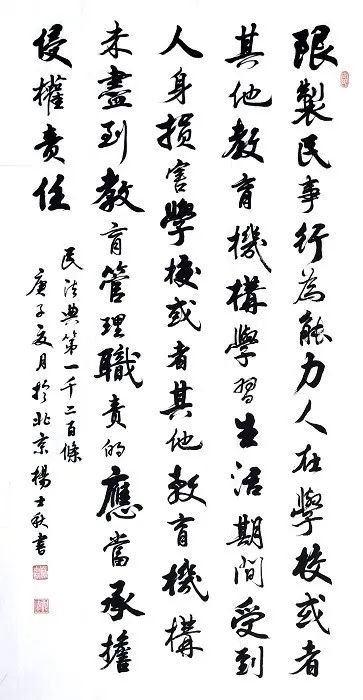 限製民事行為能力人在學校或者
其他教育機構學習生活期間受到
人身損害學校或者其他教育機構
未盡到教育管理職责的應當承擔
侵權责任
民法典第一千二百條
庚子夏月於北京楊士秋書